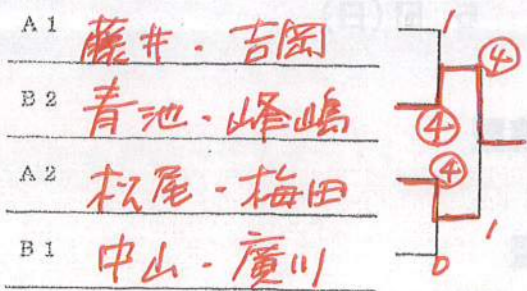 A1 藤井・吉岡 1
④
B2 青池・峰嶋 ④
A2 松尾・梅田 ④
1
B1 中山・廣川 0